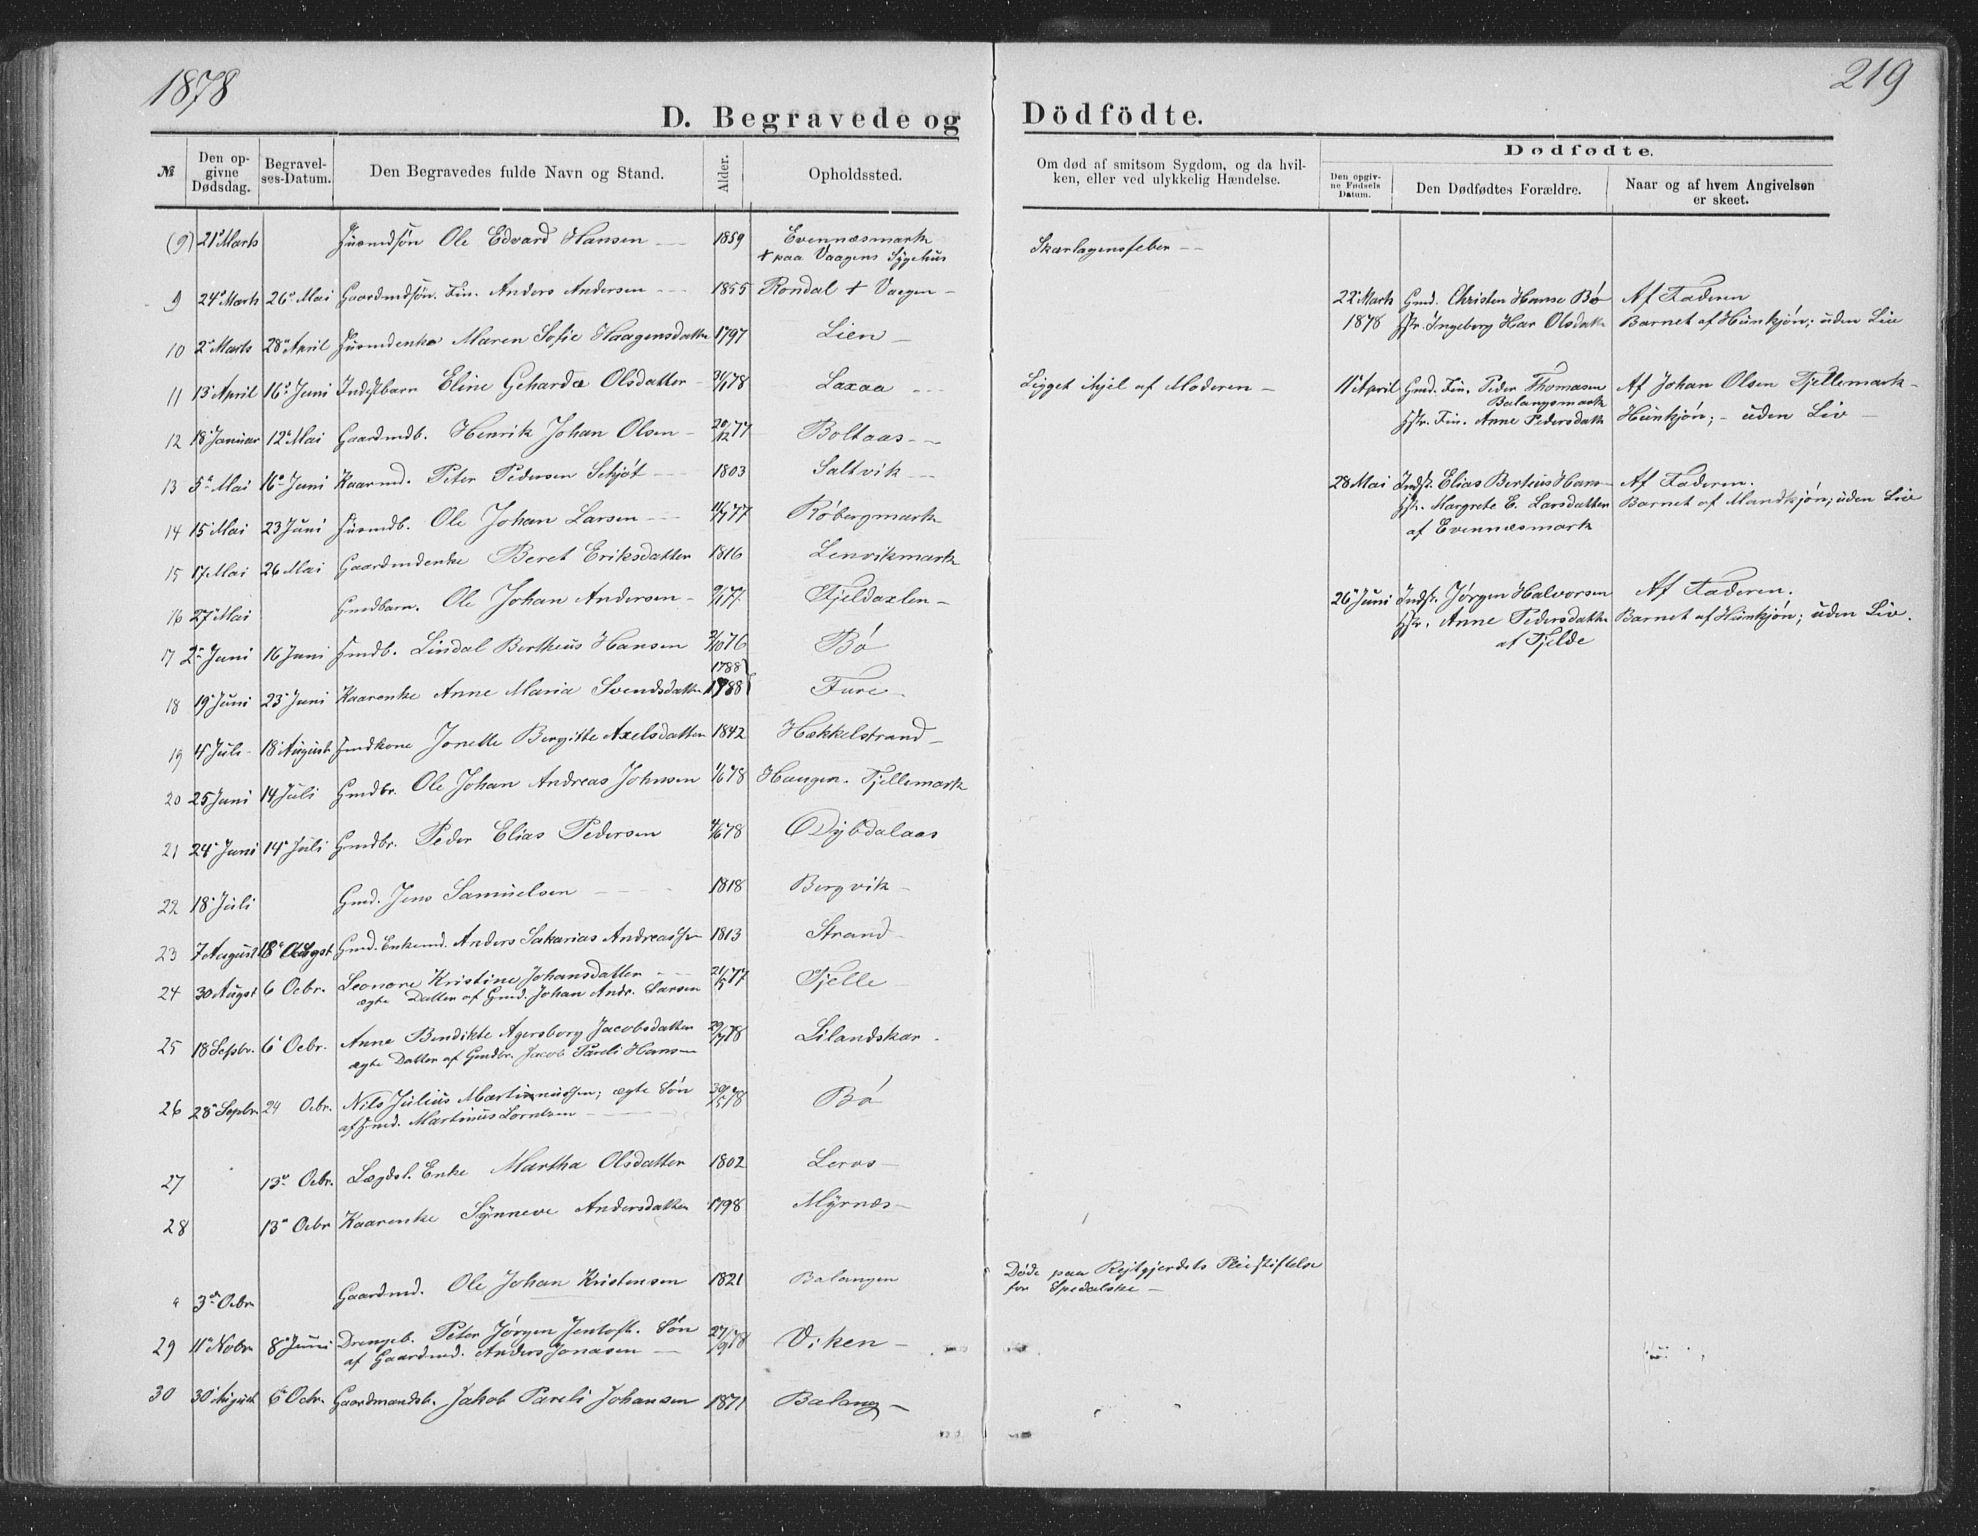 1878
219
D. Begravede og Dödfödte.
№
Den op-
givne
Dødsdag.
Begravel-
ses-Datum.
Den Begravedes fulde Navn og Stand.
Alder.
Opholdssted.
Om død af smitsom Sygdom, og da hvil-
ken, eller ved ulykkelig Hændelse.
Dødfødte.
Den opgiv-
ne Fødsels
Datum.
Den Dødfødtes Forældre.
Naar og af hvem Angivelsen
er skeet.
(9) 21 Marts Husmdsøn Ole Edvard Hansen 1859 Evennæsmark Skarlagensfeber
† paa Vaagens Sygehus
9 24 Marts 26 Mai Gaardmdsøn. Fin. Anders Andersen 1855 Rondal † Vaagen
22 Marts Gmd. Christen Hanse Bø Af Faderen
1878 Hstr. Ingeborg Har Olsdatr Barnet af Hunkjøn; uden Liv
10 2 Marts 28 April Husmdenke Maren Sofie Haagensdatter 1797 Lien
11 13 April 16 Juni Indstbarn Eline Geharda Olsdatter 78 Laxaa Ligget ihjel af Moderen
11 April Gmd. Fin. Peder Thomasen Af Johan Olsen Fjellemark
Balangsmark
Hstr. Fin. Anne Pedersdatr Hunkjøn; - uden Liv
12 18 Januar 12 Mai Gaardmdb. Henrik Johan Olsen 20/12 77 Boltaas
13 5 Mai 16 Juni Kaarmd. Peter Pedersen Schjøt 1803 Saltvik
28 Mai Indst. Elias Berteus Hans- Af Faderen.
Hstr. Margrete E. Larsdatter Barnet af Mandkjøn; uden Liv
af Evennæsmark
14 15 Mai 23 Juni Husmdb. Ole Johan Larsen 77 Røbergmark
15 17 Mai 26 Mai Gaardmdenke Beret Eriksdatter 1816 Lenvikmark
16 27 Mai Gmdbarn. Ole Johan Andersen 77 Fjeldaxlen
26 Juni Indst. Jørgen Halvorsen Af Faderen.
Hstr. Anne Pedersdatter Barnet af Hunkjøn; uden Liv.
af Fjelde
17 2 Juni 16 Juni Gmdb. Lindal Bertheus Hansen 76 Bø
1788
18 19 Juni 23 Juni Kaarenke Anne Maria Svendsdatter 1788 Fure
19 4 Juli 18 August Gmdkone Jonette Bergitte Axelsdatter 1842 Hækkelstrand
20 25 Juni 14 Juli Gmdbr. Ole Johan Andreas Johnsen 1/6 78 Haugen. Fjellemark
21 24 Juni 14 Juli Gmdbr. Peder Elias Pedersen 4/6 78 Dybdalaas
22 18 Juli Gmd. Jens Samuelsen 1818 Bergvik
23 7 August 18 Augst Gmd. Enkemd. Anders Sakarias Andreassen 1813 Strand
24 30 Augst 6 Ocbr. Leonore Kristine Johansdatter 21/5 77 Fjelle
ægte Datter af Gmd. Johan Andr. Larsen
25 18 Sepbr. 6 Ocbr. Anne Bendikte Agersborg Jacobsdatter 29/7 78 Lilandskar
ægte Datter af Gmdbr. Jacob Pareli Hansen
26 28 Sepbr. 24 Ocbr. Nils Julius Martinussen; ægte Søn 30/5 78 Bø
af Gmd. Martinus Lorntsen
27 13 Ocbr. Lægdsl. Enke Martha Olsdatter 1802 Leros
28 13 Ocbr Kaarenke Synneve Andersdatter 1798 Myrnæs
" 3 Ocbr Gaardmd. Ole Johan Kristensen 1821 Balangen Døde paa Rejtgjerdets Pleiestiftelse
for Spedalske
29 11 Nobr 8 Juni Drengeb. Peter Jørgen Jentoft. Søn 27/9 78 Viken
af Gaardmd. Anders Jonasen
30 30 August 6 Octr. Gaardmandsb. Jakob Pareli Johansen 1871 Balang